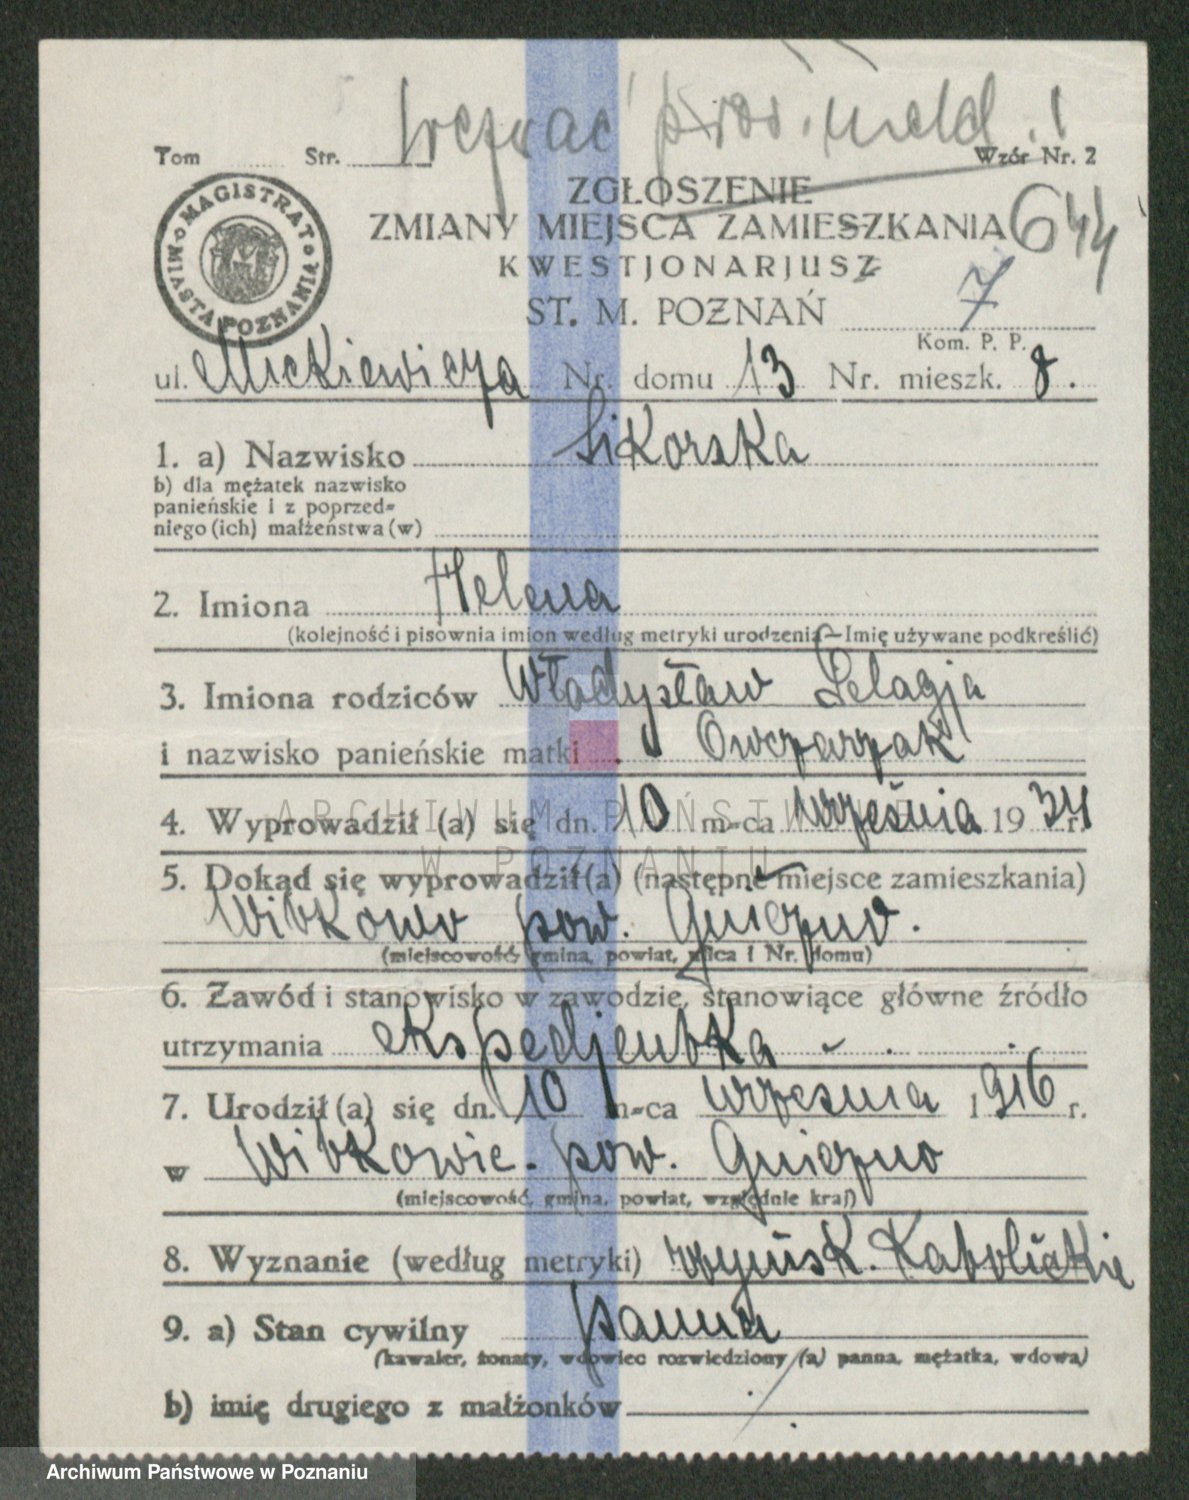 wezwać pros. meld.!
Tom ....... Str. ....... Wzór Nr. 2
MAGISTRAT MIASTA POZNANIA
ZGŁOSZENIE
ZMIANY MIEJSCA ZAMIESZKANIA 644
KWESTJONARJUSZ
ST. M. POZNAŃ 7
Kom. P. P.
ul. Mickiewicza Nr. domu 13 Nr. mieszk. 8.
1. a) Nazwisko Sikorska
b) dla mężatek nazwisko
panieńskie i z poprzed-
niego (ich) małżeństwa (w)
2. Imiona Helena
(kolejność i pisownia imion według metryki urodzenia — Imię używane podkreślić)
3. Imiona rodziców Władysław Pelagja
i nazwisko panieńskie matki Owczarzak
4. Wyprowadził (a) się dn. 10 m-ca września 1934 r.
5. Dokąd się wyprowadził(a) (następne miejsce zamieszkania)
Witkowo pow. Gniezno.
(miejscowość, gmina, powiat, ulica i Nr. domu)
6. Zawód i stanowisko w zawodzie, stanowiące główne źródło
utrzymania ekspedjentka
7. Urodził (a) się dn. 10 m-ca września 1916 r.
w Witkowie. pow. Gniezno
(miejscowość, gmina, powiat, względnie kraj)
8. Wyznanie (według metryki) rzymsk. Katolickie
9. a) Stan cywilny panna
(kawaler, żonaty, wdowiec rozwiedziony (a) panna, mężatka, wdowa)
b) imię drugiego z małżonków
ARCHIWUM PAŃSTWOWE
W POZNANIU
Archiwum Państwowe w Poznaniu